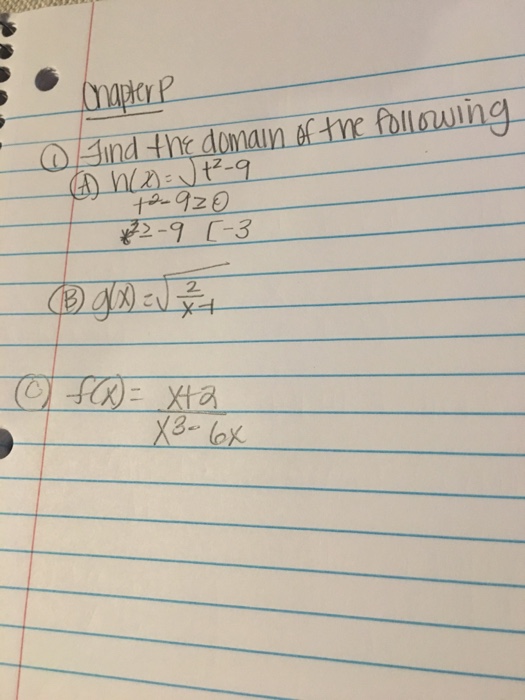 Chapter P
① Find the domain of the following
Ⓐ h(x)=√t²-9
t²-9≥0
²≥-9 [-3
Ⓑ g(x)=√2/x-1
Ⓒ f(x)= x+2
x3-6x